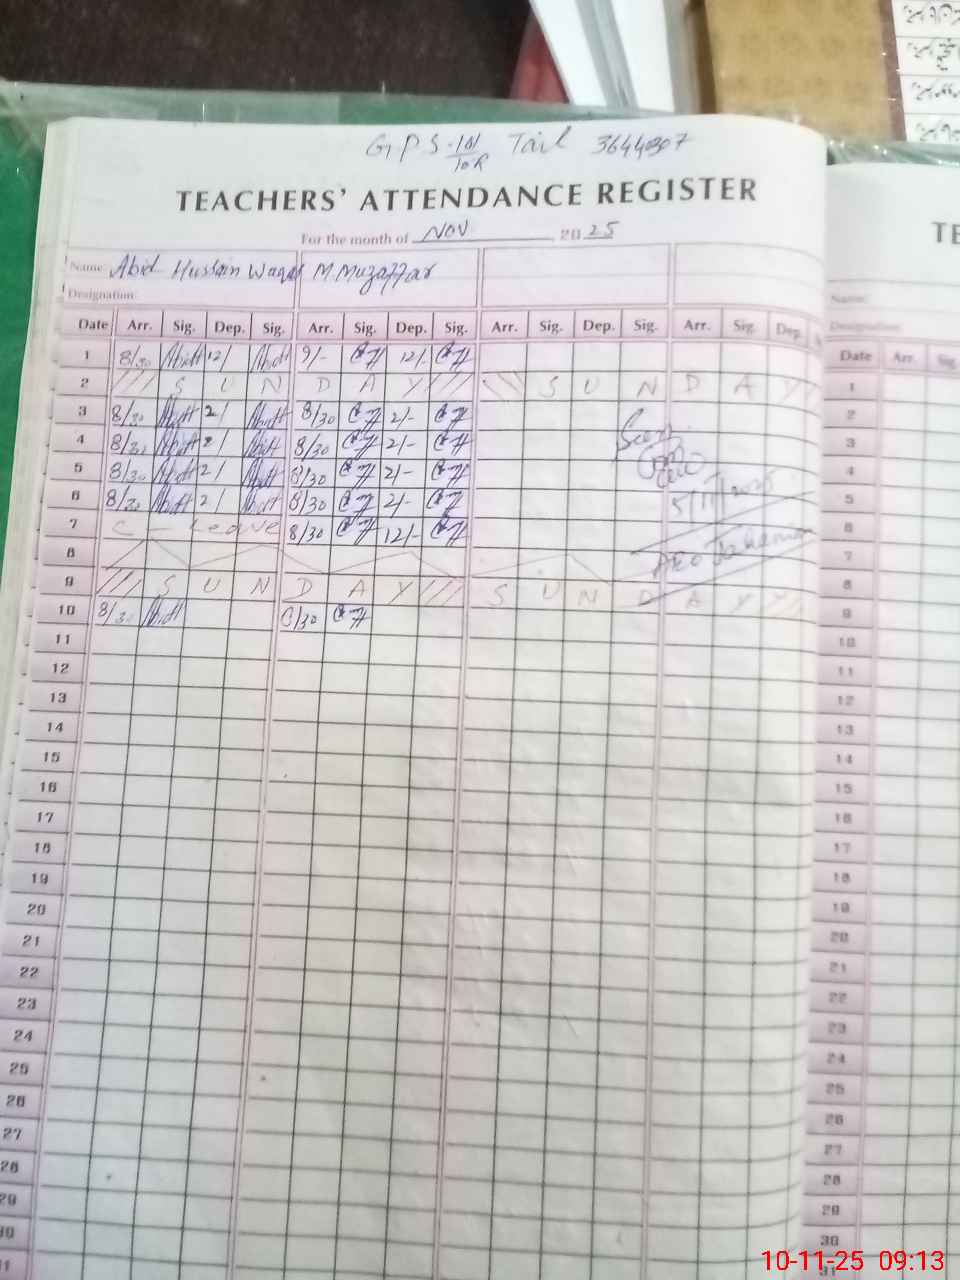 GPS 101/10R Tail 3644307
TEACHERS' ATTENDANCE REGISTER
For the month of NOV 2025
TE
Name Abid Hussain Waqas M. Muzaffar
Name:
Designation
Designation
Date Arr. Sig. Dep. Sig. Arr. Sig. Dep. Sig. Arr. Sig. Dep. Sig. Arr. Sig. Dep.
Date Arr. Sig.
1 8/30 12/ 9/- 12/-
2 SUNDAY SUNDAY
3 8/30 2/ 8/30 2/-
4 8/30 2/ 8/30 2/-
5 8/30 2/ 8/30 2/-
6 8/30 2/ 8/30 2/-
7 C - Leave 8/30 12/-
8
9 SUNDAY SUNDAY
10 8/30 8/30
11
12
13
14
15
16
17
18
19
20
21
22
23
24
25
26
27
28
29
30
Seen
5/11/2025
1
2
3
4
5
6
7
8
9
10
11
12
13
14
15
16
17
18
19
20
21
22
23
24
25
26
27
28
29
30
31
10-11-25 09:13